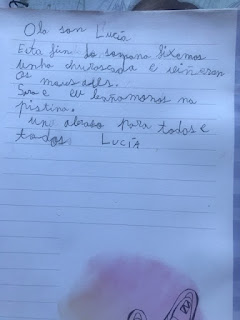 Ola son Lucía
Esta fin de somana fixemos
unha churrascada e viñeron
os meus
Sara e eu bañamonos na
pistina.
un abraso para todos e
todos LUCÍA